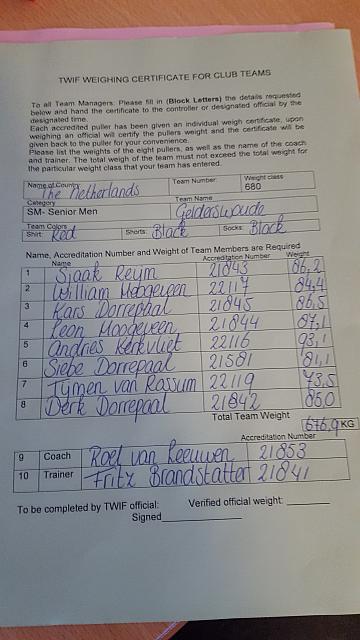 TWIF WEIGHING CERTIFICATE FOR CLUB TEAMS
To all Team Managers: Please fill in (Block Letters) the details requested
below and hand the certificate to the controller or designated official by the
designated time.
Each accredited puller has been given an individual weigh certificate, upon
weighing an official will certify the pullers weight and the certificate will be
given back to the puller for your convenience.
Please list the weights of the eight pullers, as well as the name of the coach
and trainer. The total weigh of the team must not exceed the total weight for
the particular weight class that your team has entered.
Name of Country: The Netherlands Team Number: Weight class 680
Category SM- Senior Men Team Name Gelderswoude
Team Colors
Shirt: Red Shorts: Black Socks: Black
Name, Accreditation Number and Weight of Team Members are Required
Name Accreditation Number Weight
1 Sjaak Reijm 21843 86,2
2 William Hoogeveen 22117 84,4
3 Kars Dorrepaal 21845 86,5
4 Leon Hoogeveen 21844 87,1
5 Andries Kerkvliet 22116 93,1
6 Siebe Dorrepaal 21581 81,1
7 Tymen van Rossum 22119 73,5
8 Derk Dorrepaal 21842 85,0
Total Team Weight 676,9 KG
Accreditation Number
9 Coach Roel van Leeuwen 21853
10 Trainer Fritz Brandstatter 21841
To be completed by TWIF official: Verified official weight:
Signed